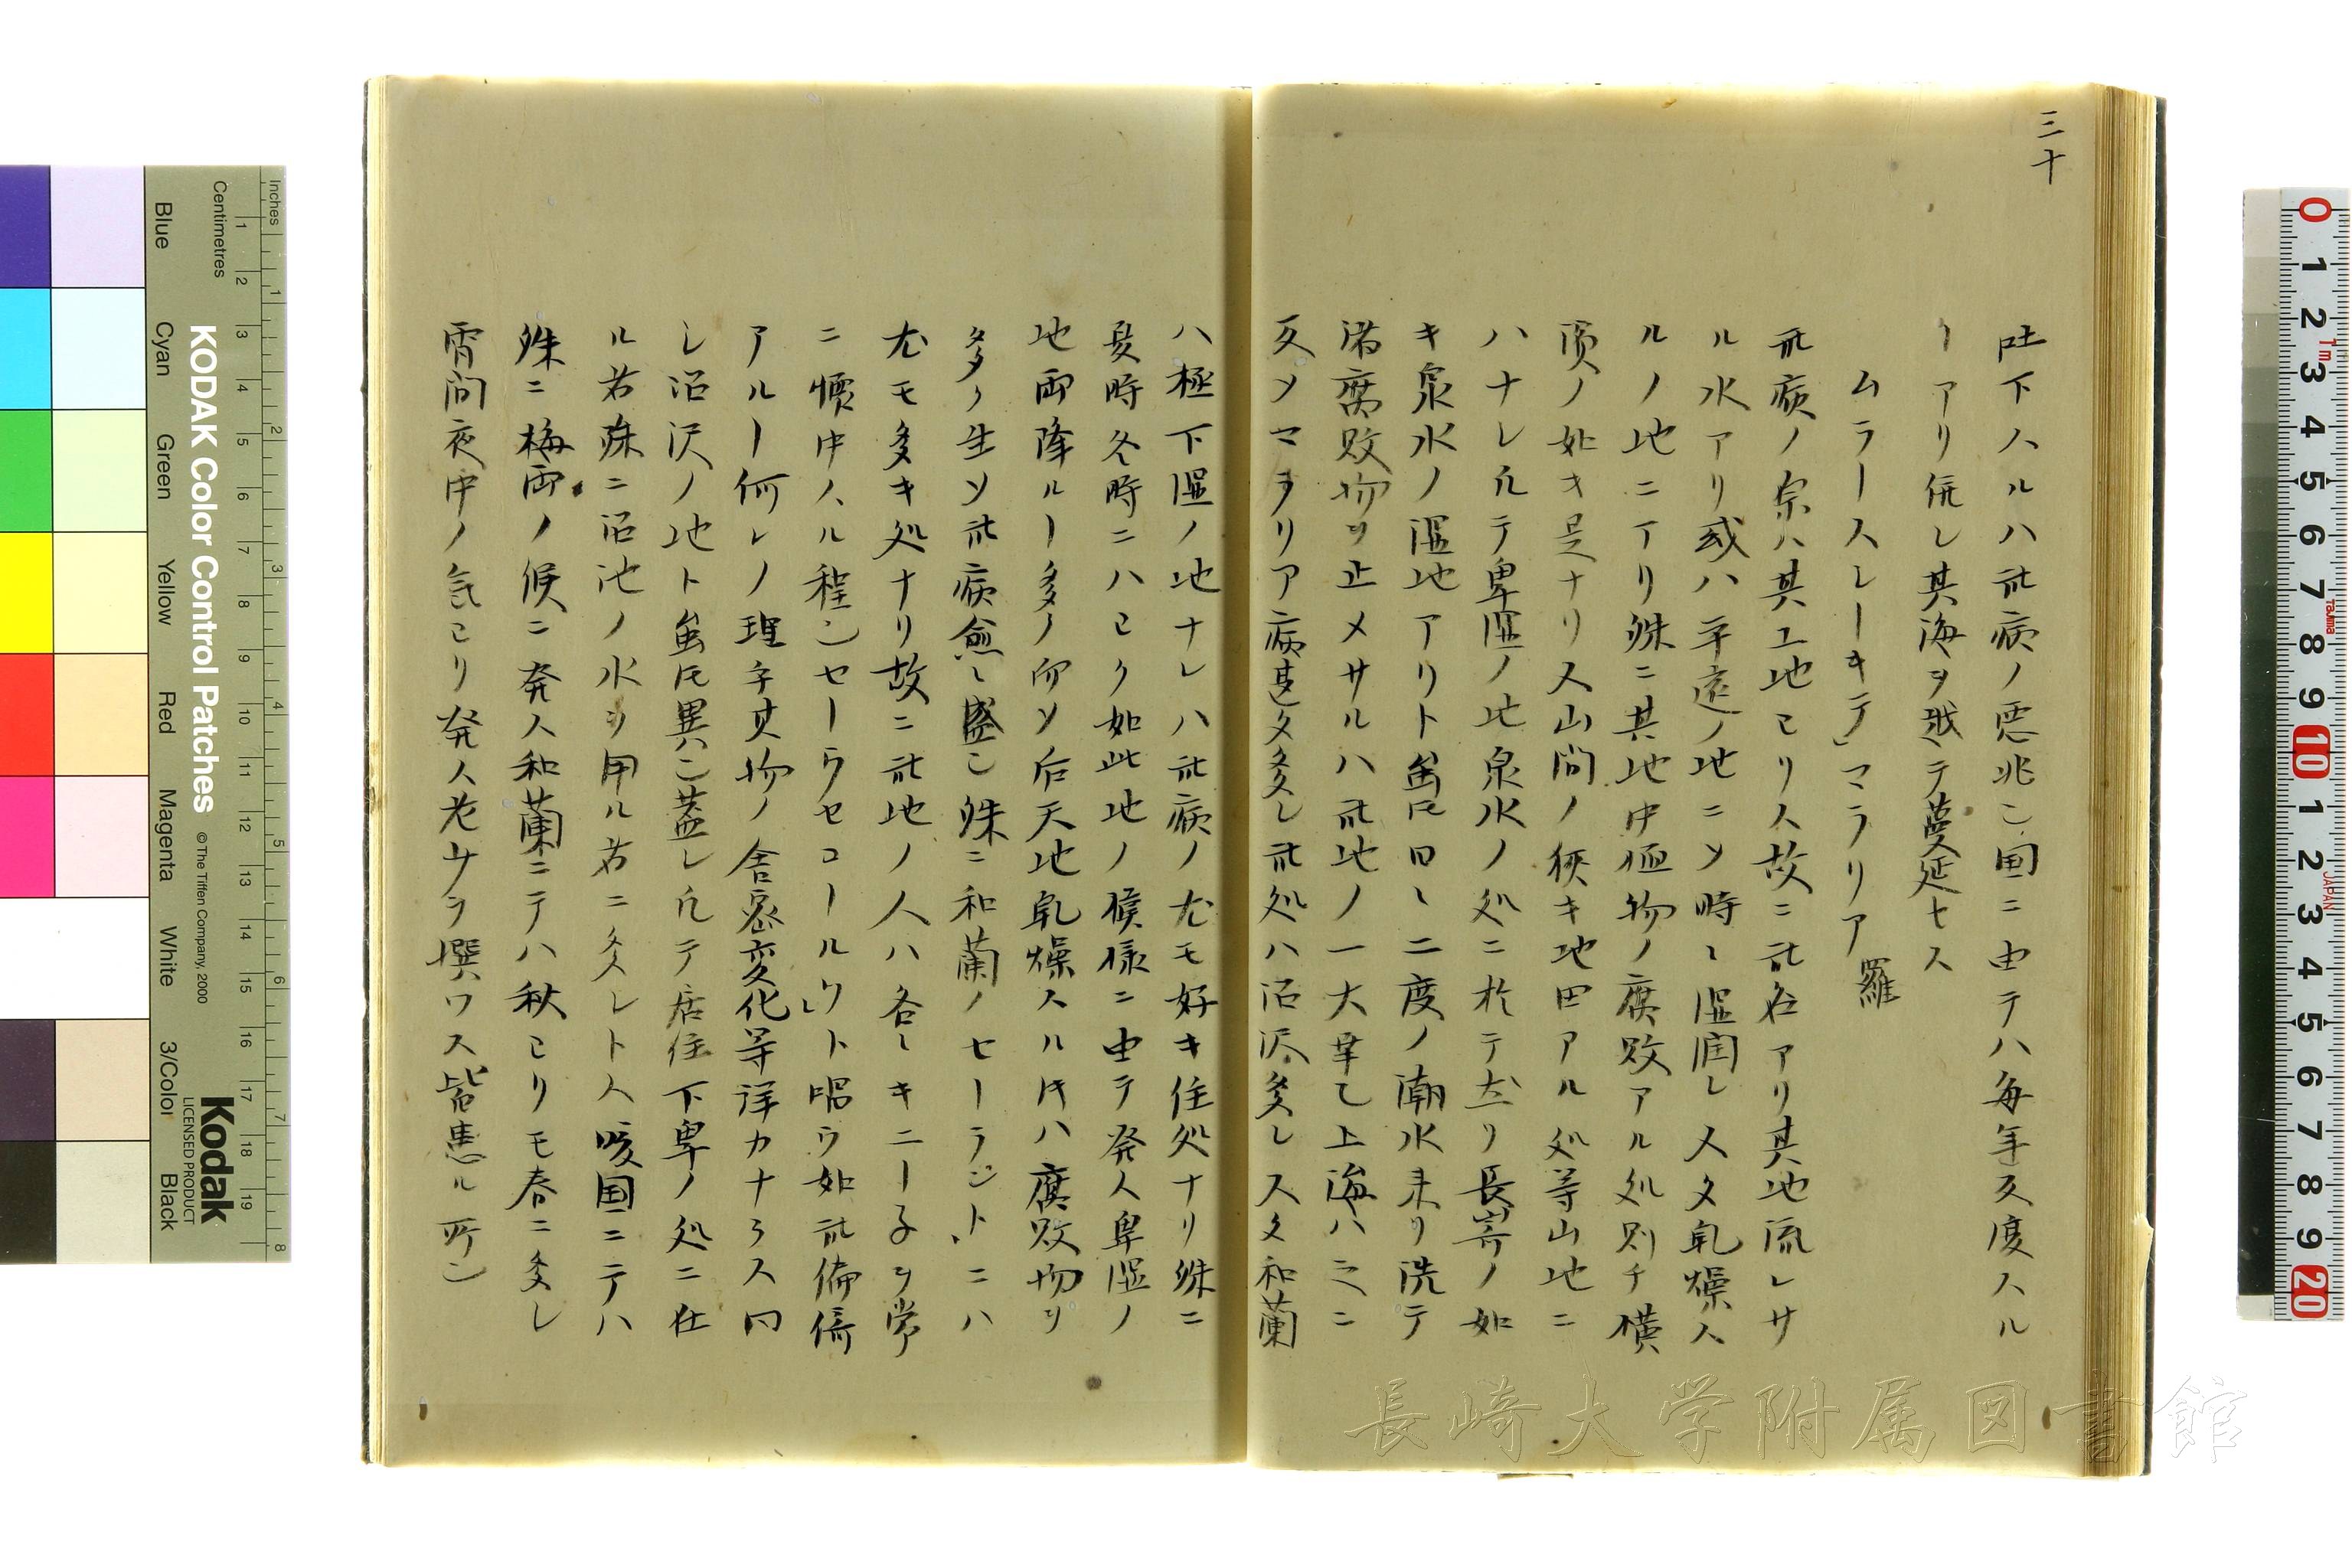 三十
吐下スルハ此病ノ悪兆ニ国ニ由テハ毎年又度スル
ヿアリ併レ其海ヲ越テ蔓延セス
ムラースレーキテ」マラリア 羅
此病ノ宗ハ其土地ヨリス故ニ此名アリ其地流レサ
ル水アリ或ハ平遠ノ地ニソ時〻湿潤レ又タ乾燥ス
ルノ地ニアリ殊ニ其地中極物ノ腐敗アル処則チ横
浜ノ如キ是ナリ又山間ノ狭キ地田アル処等山地ニ
ハナレ凡テ卑湿ノ地泉水ノ処ニ於テ在リ長崎ノ如
キ泉水ノ湿地アリト雖𪜈日〻二度ノ潮水来リ洗テ
諸腐敗物ヲ止メサルハ此地ノ一大幸ヒ上海ハ之ニ
反ソマヲリア病甚タ多レ此処ハ沼沢多レ又タ和蘭
ハ極下湿ノ地ナレハ此病ノ尤モ好キ住処ナリ殊ニ
夏時冬時ニハヒク如此地ノ候様ニ由テ発ス卑湿ノ
地雨降ルヿ多ノ而ソ后天地乾燥スル𪜈ハ腐敗物ヲ
多ク生ソ此病愈〻盛ニ殊ニ和蘭ノセーラント」ニハ
尤モ多キ処ナリ故ニ此地ノ人ハ各〻キニーネヲ常
ニ懐中スル程ニセーウセコールツ」ト唱ウ如此偏傍
アルヿ何レノ理乎其物ノ舎密変化等詳カナラス同
レ沼沢ノ地ト雖𪜈異ニ蓋レ凡テ居住下卑ノ処ニ在
ル者殊ニ沼池ノ水ヲ用ル者ニ多レトス暖国ニテハ
殊ニ梅雨ノ候ニ発ス和蘭ニテハ秋ヨリモ春ニ多レ
霄間夜中ノ気ヨリ発ス老少ヲ撰ワス皆患ル所ニ
KODAK Color Control Patches
© The Tiffen Company, 2000
Kodak
LICENSED PRODUCT
Inches
Centimetres
Blue Cyan Green Yellow Red Magenta White 3/Color Black
長崎大学附属図書館